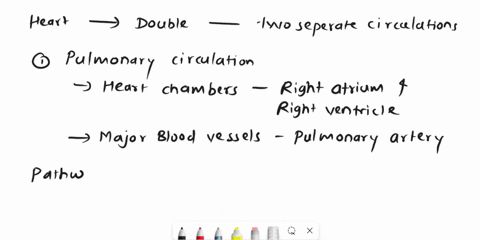 Heart → Double — Two seperate circulations
① Pulmonary circulation
→ Heart chambers — Right atrium &
Right ventricle
→ Major Blood vessels - Pulmonary artery
Pathw